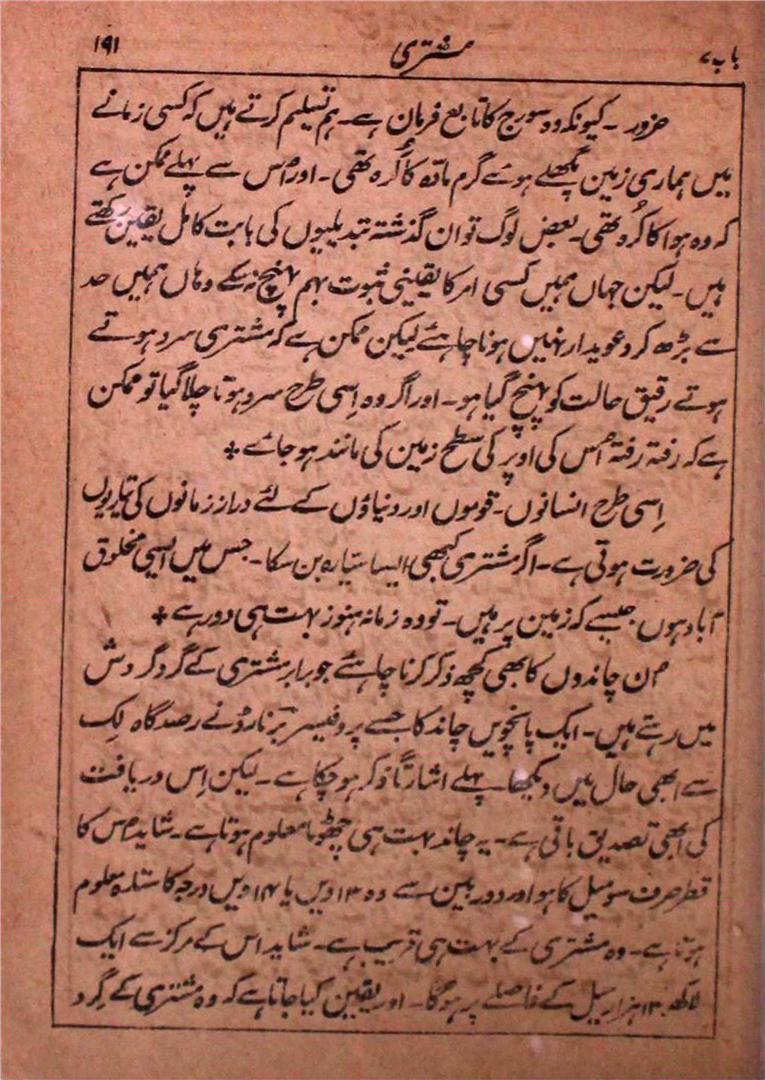 باب ۷ مشتری ۱۹۱
ضرور ۔ کیونکہ وہ سورج کا تابع فرمان ہے ۔ ہم تسلیم کرتے ہیں کہ کسی زمانے
میں ہماری زمین پگھلے ہوئے گرم مادہ کا کُرہ تھی ۔ اور اُس سے پہلے ممکن ہے
کہ وہ ہوا کا کُرہ تھی ۔ بعض لوگ تو ان گذشتہ تبدیلیوں کی بابت کامل یقین رکھتے
ہیں ۔ لیکن جہاں ہمیں کسی امر کا یقینی ثبوت بہم پہنچ نہ سکے وہاں ہمیں حد
سے بڑھ کر دعویدار نہیں ہونا چاہئے لیکن ممکن ہے کہ مشتری سرد ہوتے
ہوتے رقیق حالت کو پہنچ گیا ہو ۔ اور اگر وہ اِسی طرح سرد ہوتا چلا گیا تو ممکن
ہے کہ رفتہ رفتہ اُس کی اوپر کی سطح زمین کی مانند ہو جائے ٭
اِسی طرح انسانوں ۔ قوموں اور دنیاؤں کے لئے دراز زمانوں کی تیاریوں
کی ضرورت ہوتی ہے ۔ اگر مشتری کبھی ایسا سیّارہ بن سکا ۔ جس میں ایسی مخلوق
آباد ہوں جیسے کہ زمین پر ہیں ۔ تو وہ زمانہ ہنوز بہت ہی دور ہے ٭
اُن چاندوں کا بھی کچھ ذکر کرنا چاہئے جو برابر مشتری کے گرد گردش
میں رہتے ہیں ۔ ایک پانچویں چاند کا جسے پروفیسر برنارڈ نے رصدگاہ لِک
سے ابھی حال میں دیکھا پہلے اشارتاً ذکر ہو چکا ہے ۔ لیکن اِس دریافت
کی ابھی تصدیق باقی ہے ۔ یہ چاند بہت ہی چھوٹا معلوم ہوتا ہے ۔ شاید اُس کا
قطر صرف سو میل کا ہو اور دوربین سے وہ ۱۳ ویں یا ۱۴ ویں درجہ کا ستارہ معلوم
ہوتا ہے ۔ وہ مشتری کے بہت ہی قریب ہے ۔ شاید اس کے مرکز سے ایک
لاکھ ۱۳ ہزار میل کے فاصلے پر ہوگا ۔ اور یقین کیا جاتا ہے کہ وہ مشتری کے گِرد